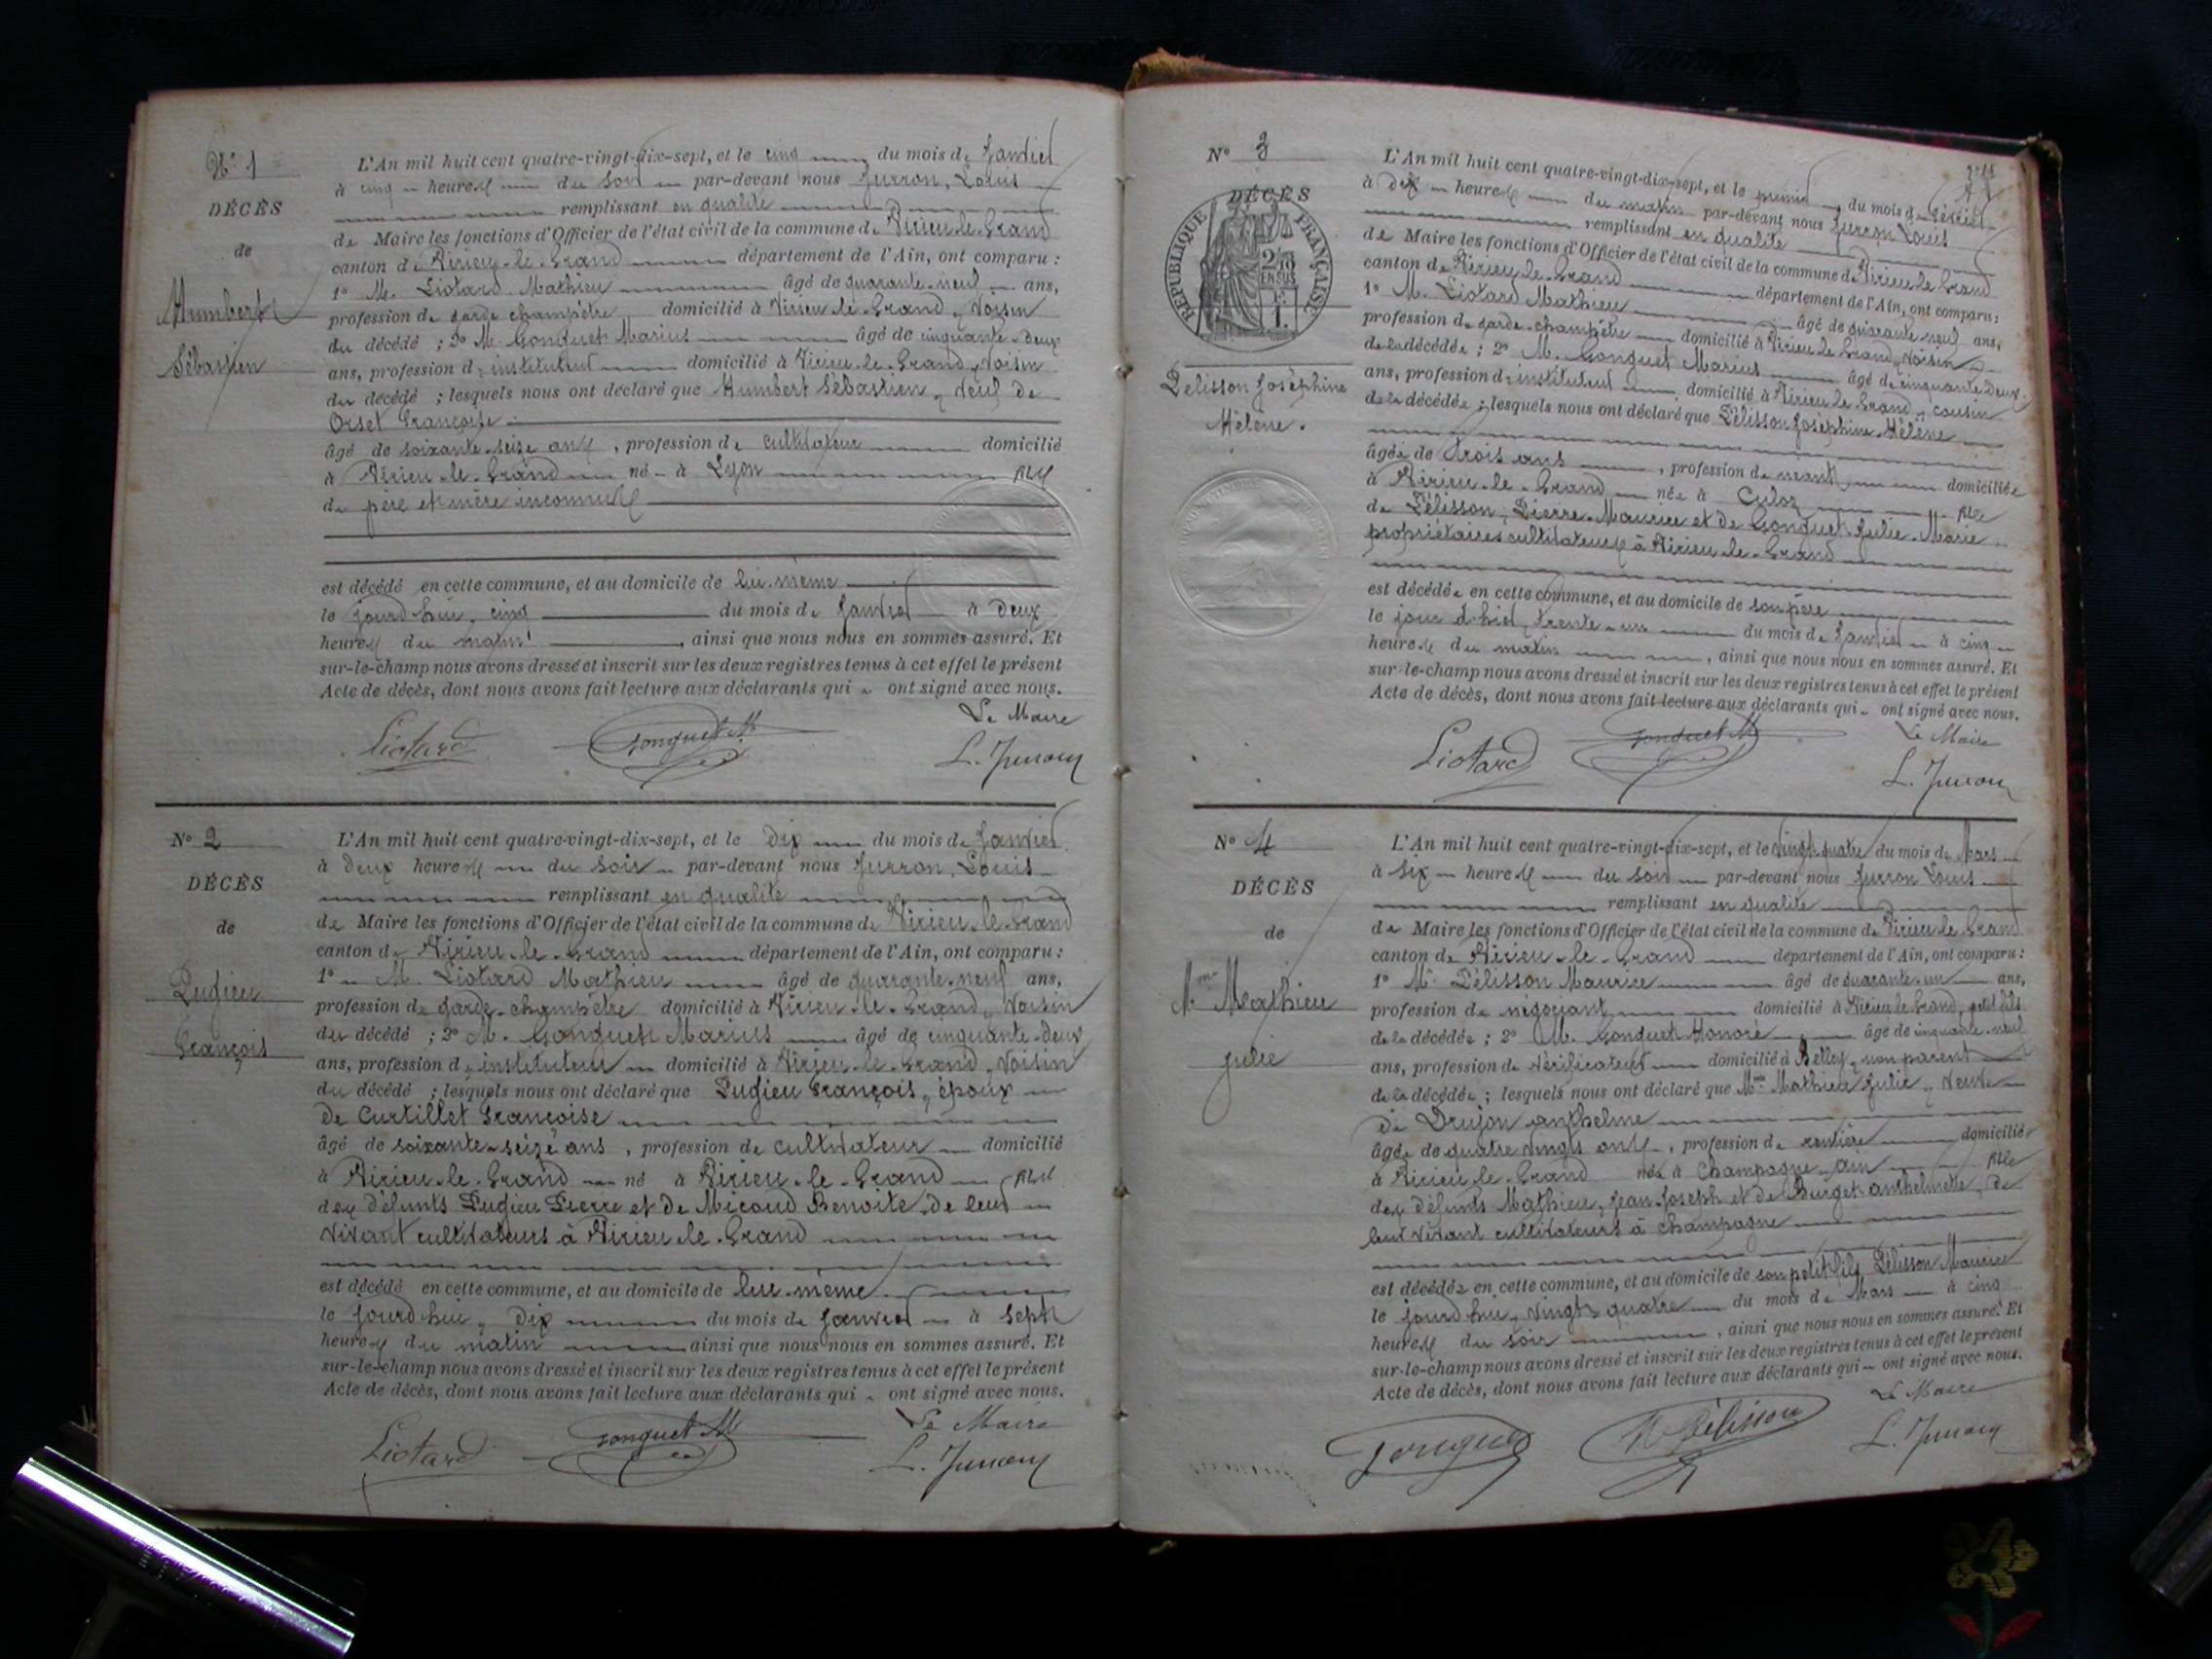 N° 1
DÉCÈS
de
Humbert
Sébastien
L'An mil huit cent quatre-vingt-dix-sept, et le cinq du mois de Janvier
à cinq heures du soir par-devant nous Jurron, Louis
remplissant en qualité
de Maire les fonctions d'Officier de l'état civil de la commune de Virieu-le-Grand
canton de Virieu-le-Grand département de l'Ain, ont comparu :
1° M. Liotard Mathieu âgé de quarante-neuf ans,
profession de garde champêtre domicilié à Virieu-le-Grand, voisin
du décédé ; 2° M. Gonguet Marius âgé de cinquante-deux
ans, profession d'instituteur domicilié à Virieu-le-Grand, voisin
du décédé ; lesquels nous ont déclaré que Humbert Sébastien, veuf de
Orset Françoise
âgé de soixante-seize ans, profession de cultivateur domicilié
à Virieu-le-Grand né à Lyon fils
de père et mère inconnus
est décédé en cette commune, et au domicile de lui-même
le jourd'hui, cinq du mois de Janvier à deux
heures du matin, ainsi que nous nous en sommes assuré. Et
sur-le-champ nous avons dressé et inscrit sur les deux registres tenus à cet effet le présent
Acte de décès, dont nous avons fait lecture aux déclarants qui ont signé avec nous.
Le Maire
Liotard Gonguet M. L. Jurron
N° 2
DÉCÈS
de
Pugieu
François
L'An mil huit cent quatre-vingt-dix-sept, et le Dix du mois de Janvier
à Deux heures du soir par-devant nous Jurron, Louis
remplissant en qualité
de Maire les fonctions d'Officier de l'état civil de la commune de Virieu-le-Grand
canton de Virieu-le-Grand département de l'Ain, ont comparu :
1° M. Liotard Mathieu âgé de quarante-neuf ans,
profession de garde-champêtre domicilié à Virieu-le-Grand, voisin
du décédé ; 2° M. Gonguet Marius âgé de cinquante-deux
ans, profession d'instituteur domicilié à Virieu-le-Grand, voisin
du décédé ; lesquels nous ont déclaré que Pugieu François, époux
de Curtillet Françoise
âgé de soixante-seize ans, profession de cultivateur domicilié
à Virieu-le-Grand né à Virieu-le-Grand fils
des défunts Pugieu Pierre et de Micoud Benoite, de leur
vivant cultivateurs à Virieu-le-Grand
est décédé en cette commune, et au domicile de lui-même
le jourd'hui, Dix du mois de Janvier à sept
heures du matin ainsi que nous nous en sommes assuré. Et
sur-le-champ nous avons dressé et inscrit sur les deux registres tenus à cet effet le présent
Acte de décès, dont nous avons fait lecture aux déclarants qui ont signé avec nous.
Le Maire
Liotard Gonguet M. L. Jurron
N° 3
DÉCÈS
RÉPUBLIQUE FRANÇAISE
Pélisson Joséphine
Hélène.
L'An mil huit cent quatre-vingt-dix-sept, et le premier du mois de février
à dix heures du matin par-devant nous Jurron Louis
remplissant en qualité
de Maire les fonctions d'Officier de l'état civil de la commune de Virieu le Grand
canton de Virieu-le-Grand département de l'Ain, ont comparu :
1° M. Liotard Mathieu âgé de quarante-neuf ans,
profession de garde-champêtre domicilié à Virieu le Grand, voisin
de la décédée ; 2° M. Gonguet Marius âgé de cinquante-deux
ans, profession d'instituteur domicilié à Virieu-le-Grand, cousin
de la décédée ; lesquels nous ont déclaré que Pélisson Joséphine-Hélène
âgée de trois ans, profession de néant domiciliée
à Virieu-le-Grand née à Culoz fille
de Pélisson, Pierre-Maurice et de Gonguet Julie-Marie
propriétaires cultivateurs à Virieu-le-Grand
est décédée en cette commune, et au domicile de son père
le jour d'hier, trente-un du mois de Janvier à cinq
heures du matin, ainsi que nous nous en sommes assuré. Et
sur-le-champ nous avons dressé et inscrit sur les deux registres tenus à cet effet le présent
Acte de décès, dont nous avons fait lecture aux déclarants qui ont signé avec nous.
Le Maire
Liotard Gonguet M L. Jurron
N° 4
DÉCÈS
de
Mme Mathieu
Julie
L'An mil huit cent quatre-vingt-dix-sept, et le vingt-quatre du mois de Mars
à six heures du soir par-devant nous Jurron Louis
remplissant en qualité
de Maire les fonctions d'Officier de l'état civil de la commune de Virieu le Grand
canton de Virieu-le-Grand département de l'Ain, ont comparu :
1° M. Pélisson Maurice âgé de quarante-un ans,
profession de négociant domicilié à Virieu le Grand, petit fils
de la décédée ; 2° M. Gonguet Honoré âgé de cinquante-neuf
ans, profession de vérificateur domicilié à Belley, non parent
de la décédée ; lesquels nous ont déclaré que Mme Mathieu Julie, veuve
de Drujon anthelme
âgée de quatre vingts ans, profession de rentière domiciliée
à Virieu-le-Grand née à Champagne ain fille
des défunts Mathieu, Jean-Joseph et de Burget anthelmette, de
leur vivant cultivateurs à Champagne
est décédée en cette commune, et au domicile de son petit fils Pélisson Maurice
le jourd'hui, vingt-quatre du mois de Mars à cinq
heures du soir, ainsi que nous nous en sommes assuré. Et
sur-le-champ nous avons dressé et inscrit sur les deux registres tenus à cet effet le présent
Acte de décès, dont nous avons fait lecture aux déclarants qui ont signé avec nous.
Le Maire
Gonguet M Pélisson L. Jurron